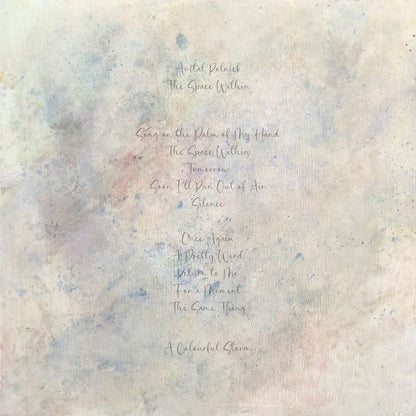 Avital Raluick
The Space Within
Song on the Palm of My Hand
The Space Within
Tomorrow
Soon I'll Run Out of Air
Silence
Once Again
A Pretty Word
Return to Me
For a Moment
The Same Thing
A Colourful Storm